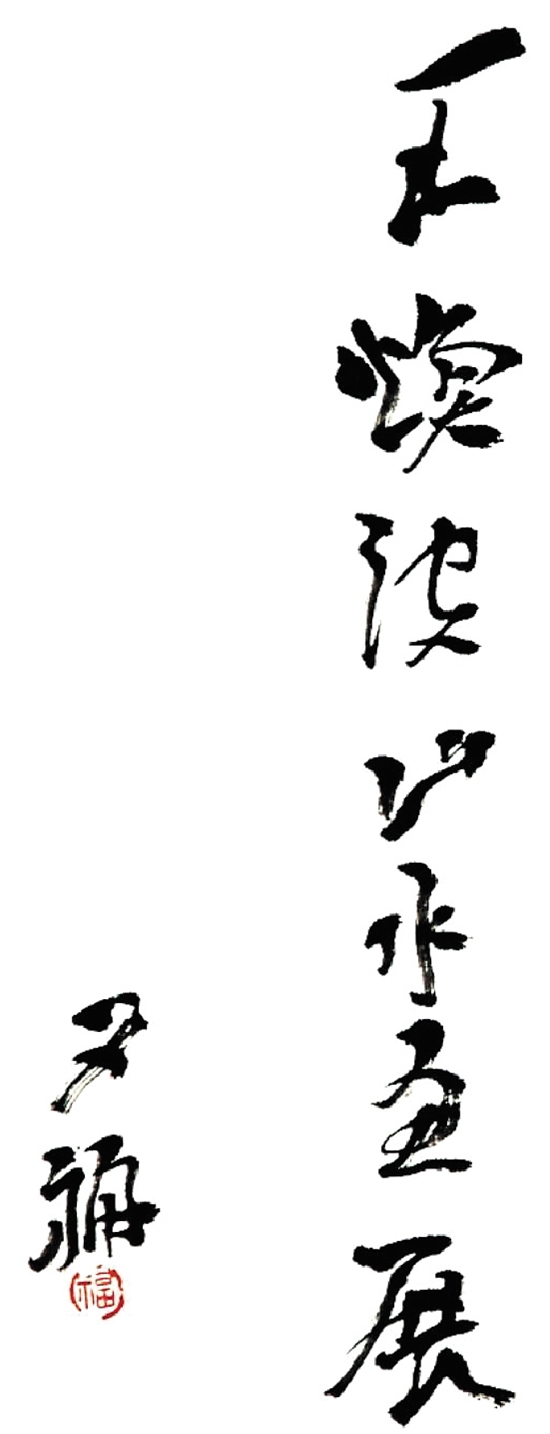 王焕波山水画展
福